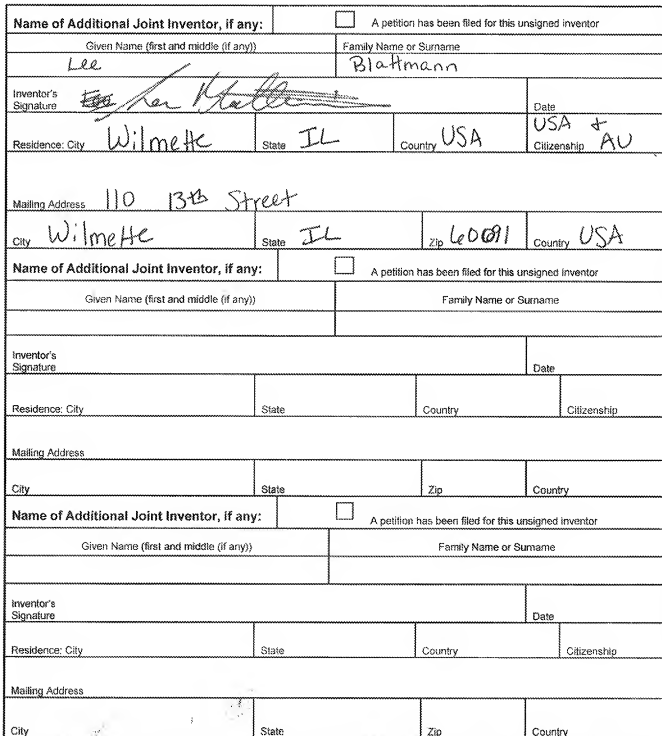 Name of Additional Joint Inventor, if any: A petition has been filed for this unsigned inventor
Given Name (first and middle (if any)) Family Name or Surname
Lee Blattmann
Inventor's
Signature Date
Residence: City Wilmette State IL Country USA Citizenship USA & AU
Mailing Address 110 13th Street
City Wilmette State IL Zip 60091 Country USA
Name of Additional Joint Inventor, if any: A petition has been filed for this unsigned inventor
Given Name (first and middle (if any)) Family Name or Surname
Inventor's
Signature Date
Residence: City State Country Citizenship
Mailing Address
City State Zip Country
Name of Additional Joint Inventor, if any: A petition has been filed for this unsigned inventor
Given Name (first and middle (if any)) Family Name or Surname
Inventor's
Signature Date
Residence: City State Country Citizenship
Mailing Address
City State Zip Country